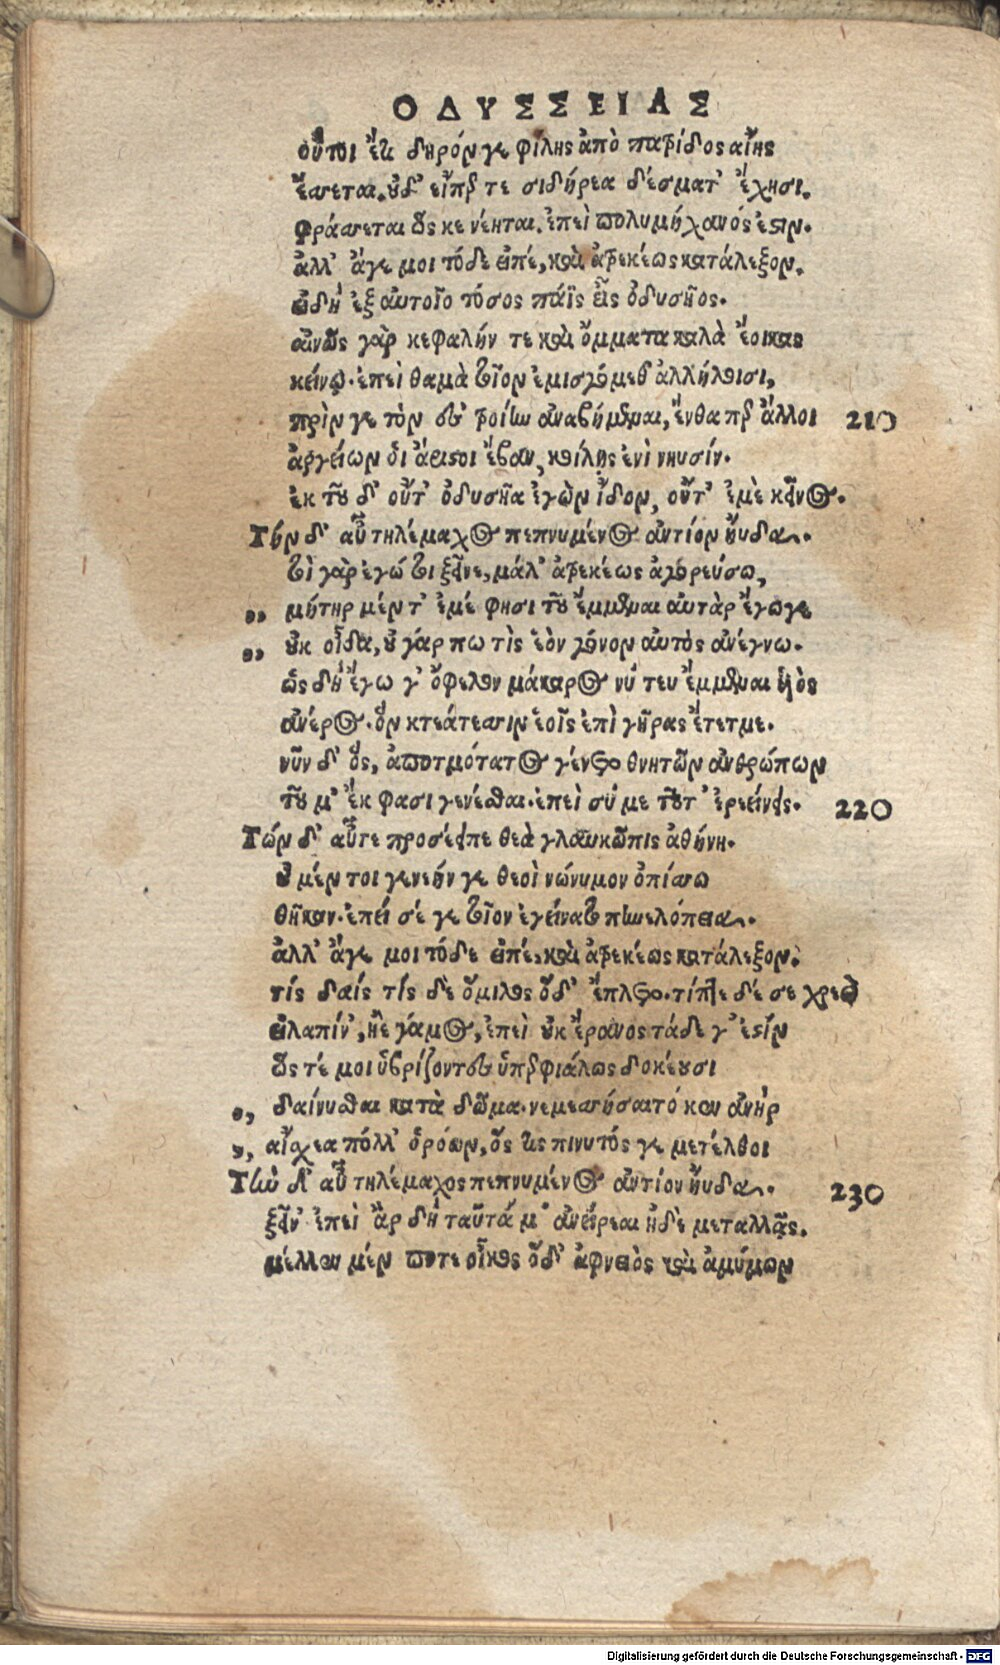 ΟΔΥΣΣΕΙΑΣ
οὔτοι ἔτι δηρόν γε φίλης ἀπὸ πατρίδος αἴης
ἔσσεται. οὐδ' εἴπερ τε σιδήρεα δέσματ' ἔχησι.
φράσσεται ὥς κε νέηται. ἐπεὶ πολυμήχανός ἐστιν.
ἀλλ' ἄγε μοι τόδε εἰπέ, καὶ ἀτρεκέως κατάλεξον.
εἰ δὴ ἐξ αὐτοῖο τόσος πάϊς εἶς ὀδυσῆος.
αἰνῶς γὰρ κεφαλήν τε καὶ ὄμματα καλὰ ἔοικας
κείνῳ. ἐπεὶ θαμὰ τοῖον ἐμισγόμεθ' ἀλλήλοισι,
πρίν γε τὸν ἐς τροίην ἀναβήμεναι, ἔνθα περ ἄλλοι 210
ἀργείων οἱ ἄριστοι ἔβαν, κοίλῃς ἐνὶ νηυσίν.
ἐκ τοῦ δ' οὔτ' ὀδυσῆα ἐγὼν ἴδον, οὔτ' ἐμὲ κεῖνος.
Τὸν δ' αὖ τηλέμαχος πεπνυμένος ἀντίον ηὔδα.
τοὶ γὰρ ἐγώ τοι ξεῖνε, μάλ' ἀτρεκέως ἀγορεύσω,
,, μήτηρ μέν τ' ἐμέ φησι τοῦ ἔμμεναι αὐτὰρ ἔγωγε
,, οὐκ οἶδα, οὐ γάρ πω τὶς ἑὸν γόνον αὐτὸς ἀνέγνω.
ὡς δὴ ἔγω γ' ὄφελον μάκαρος νύ τευ ἔμμεναι υἱὸς
ἀνέρος. ὃν κτεάτεσσιν ἑοῖς ἐπὶ γῆρας ἔτετμε.
νῦν δ' ὃς, ἀποτμότατος γένετο θνητῶν ἀνθρώπων
τοῦ μ' ἔκ φασι γενέσθαι. ἐπεὶ σύ με τοῦτ' ἐρεείνεις. 220
Τόν δ' αὖτε προσέειπε θεὰ γλαυκῶπις ἀθήνη.
οὐ μέν τοι γενεήν γε θεοὶ νώνυμον ὀπίσσω
θῆκαν. ἐπεί σέ γε τοῖον ἐγείνατο πηνελόπεια.
ἀλλ' ἄγε μοι τόδε εἰπέ, καὶ ἀτρεκέως κατάλεξον.
τίς δαίς τίς δὲ ὅμιλος ὅδ' ἔπλετο. τίπτε δέ σε χρεὼ
εἰλαπίν', ἠὲ γάμος, ἐπεὶ οὐκ ἔρανος τάδε γ' ἐστίν
ὥς τέ μοι ὑβρίζοντες ὑπερφιάλως δοκέουσι
,, δαίνυσθαι κατὰ δῶμα. νεμεσσήσαιτό κεν ἀνὴρ
,, αἴσχεα πόλλ' ὁρόων, ὅς τις πινυτός γε μετέλθοι
Τὴν δ' αὖ τηλέμαχος πεπνυμένος ἀντίον ηὔδα. 230
ξεῖν' ἐπεὶ ἂρ δὴ ταῦτά μ' ἀνείρεαι ἠδὲ μεταλλᾷς.
μέλλεν μέν ποτε οἶκος ὅδ' ἀφνειὸς καὶ ἀμύμων
Digitalisierung gefördert durch die Deutsche Forschungsgemeinschaft - DFG